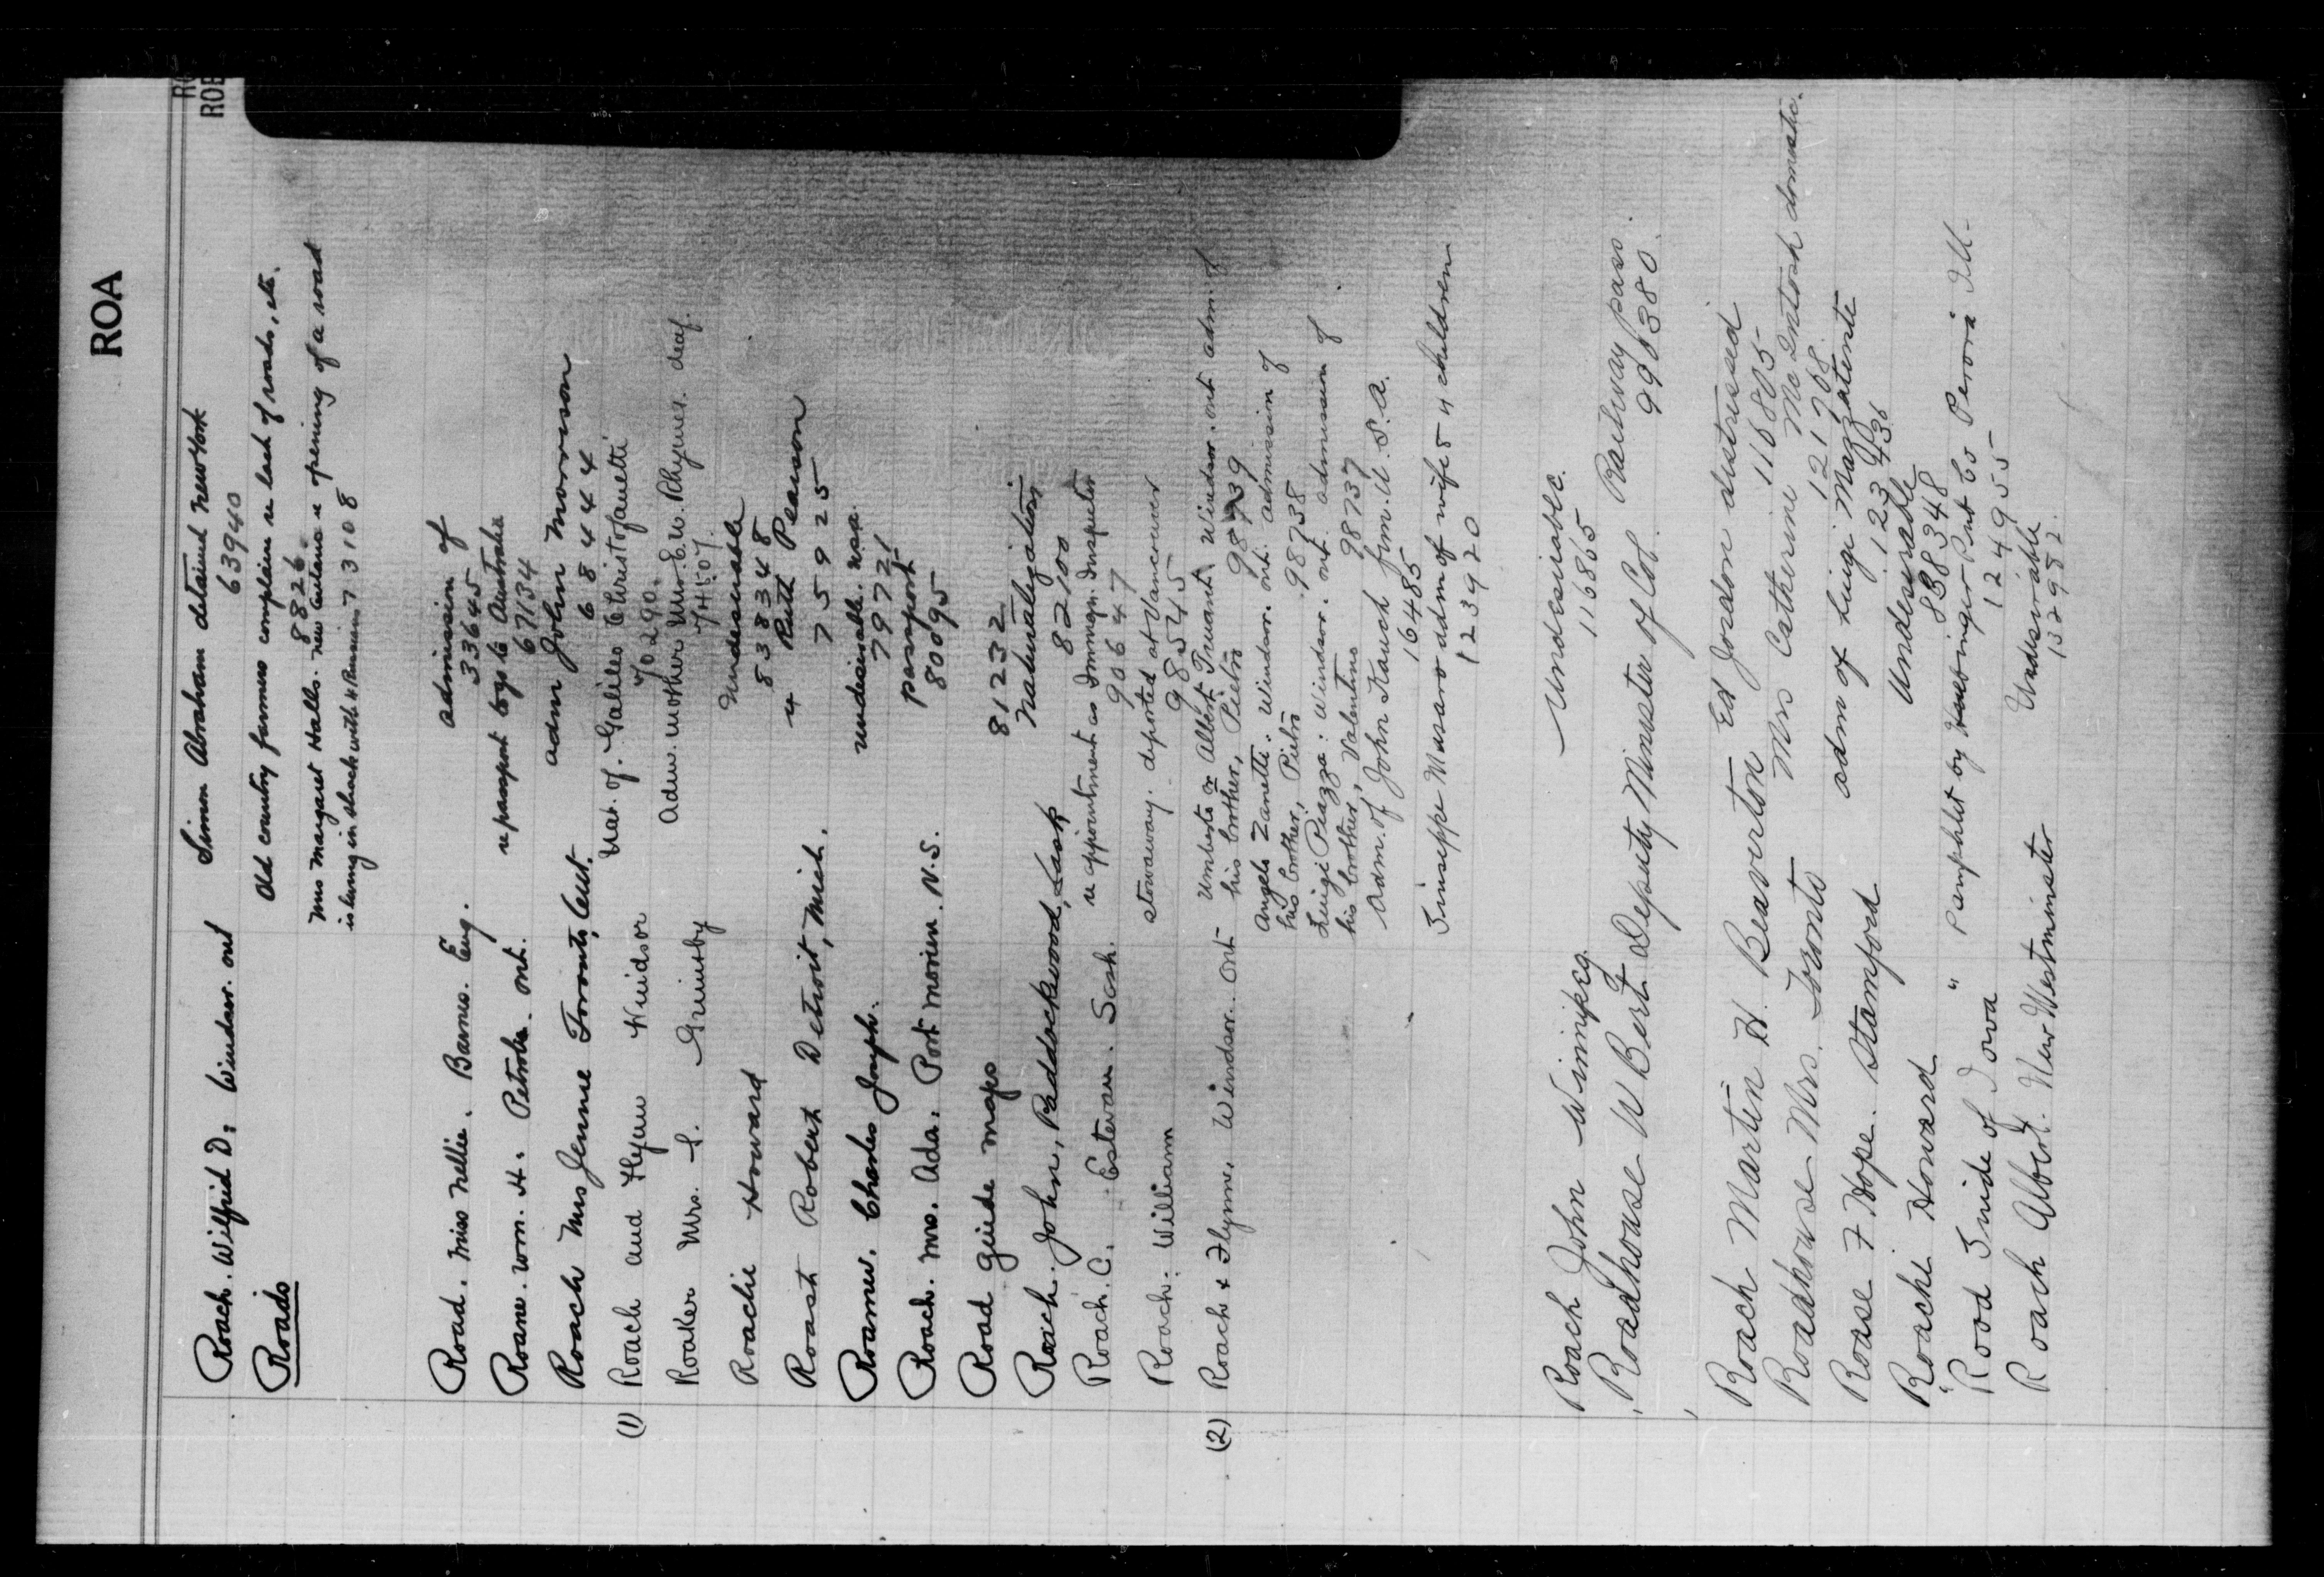 ROA
RO
ROB
Roach. Wilfrid D. Windsor. ont Simon Abraham detained New York
639440
Roads Old country farmers complain re lack of roads, etc.
8826
Mrs Margaret Halls. New Ontario re opening of a road
is living in shack with 4 Russians 7 3108
Road. Miss Nellie. Barnes. Eng. admission of
33645
Roane. Wm. H. Petrolia. ont. re passport boys to Australia
67134
Roach Mrs Jennie Toronto, Ont. adm John Morrison
6 8 4 4 4
(1) Roach and Flynn Windsor Nat. of. Galileo Christofanetti
70290.
Roaker Mrs. L. Grimsby Adm. mother Mrs E. W. Rhymes. deaf.
74507.
Roache Howard Undesirable
5 3 8 3 4 8
Roast Robert Detroit, Mich. 4 Ruth Pearson
7 5 9 2 5
Roamer. Charles Joseph. undesirable. USA.
79721
Roach. Mrs. Ada. Port Morien. N.S. passport
80095
Road guide maps 81232
Roach. John, Paddockwood, Sask Naturalization
82100
Roach. C. Estevan. Sask. re appointment as Immign. Inspector
906447
Roach. William stowaway. deported at Vancouver
98545
(2) Roach & Flynn, Windsor. Ont Umberto or Albert Truant, Windsor. ont adm. of
his brother, Pietro 98739
Angelo Zanette. Windsor. ont. admission of
his brother, Pietro 98738
Luigi Piazza: Windsor. ont. admission of
his brother, Valentino 98737
Adm. of John Kauch from. U.S.A.
16485
Giuseppe Musaro adm of wife & 4 children
123920
Roach John Winnipeg. Undesirable.
116865
Roadhouse W Bert. Deputy Minister of Col. Railway pass.
996380.
Roach Martin H. Beaverton Ed Jordon distressed
116805
Roadhouse Mrs. Toronto Mrs Catherine McIntosh domestic.
121708.
Roase F Hope. Stamford adm of Luigi Mazzatenta
123436
Roache Howard Undesirable
538348
"Road Guide of Iowa" Pamphlet by Pub Co Peoria Ill.
124955
Roach Albert. New Westminster Undesirable
132982.